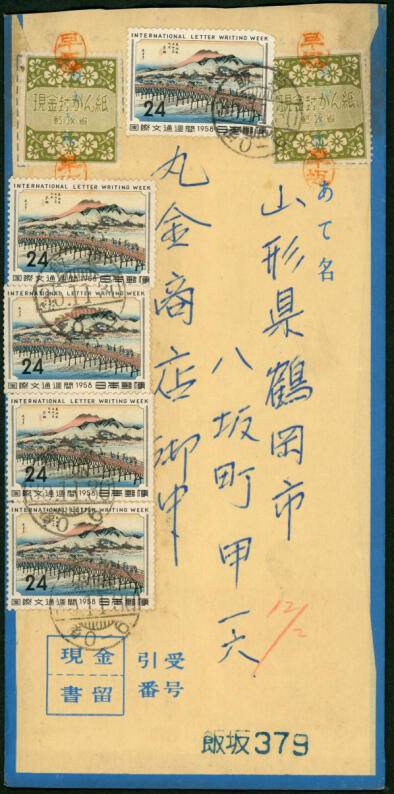 INTERNATIONAL LETTER WRITING WEEK
24
国際文通週間 1958 日本郵便
現金封かん紙
郵政省
現金封かん紙
郵政省
あて名
山形県鶴岡市
八坂町甲一六
丸金商店御中
INTERNATIONAL LETTER WRITING WEEK
24
国際文通週間 1958 日本郵便
INTERNATIONAL LETTER WRITING WEEK
24
国際文通週間 1958 日本郵便
INTERNATIONAL LETTER WRITING WEEK
24
国際文通週間 1958 日本郵便
INTERNATIONAL LETTER WRITING WEEK
24
国際文通週間 1958 日本郵便
12/2
現金
書留
引受
番号
飯坂379